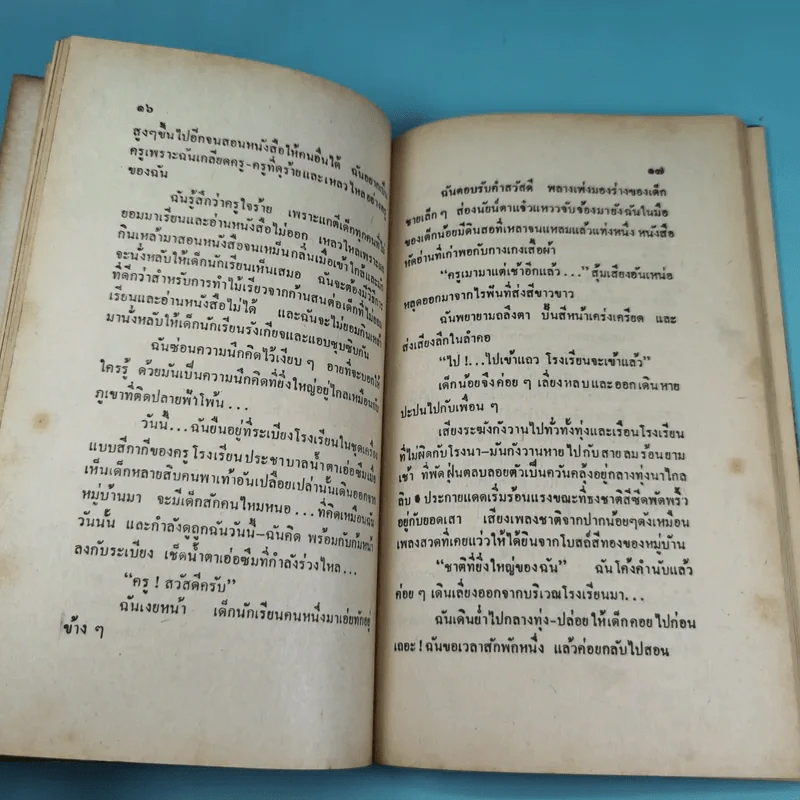 ๑๖
สูงๆขึ้นไปอีกจนสอนหนังสือให้คนอื่นได้ ฉันอยากเป็น
ครูเพราะฉันเกลียดครู-ครูที่ดุร้ายและเหลวไหลอย่างครู
ของฉัน
ฉันรู้สึกว่าครูใจร้าย เพราะแกตีเด็กทุกคนที่ไม่
ยอมมาเรียนและอ่านหนังสือไม่ออก เหลวไหลเพราะแก
กินเหล้ามาสอนหนังสือจนเหม็นกลิ่นเมื่อเข้าใกล้และมัก
จะนั่งหลับให้เด็กนักเรียนเห็นเสมอ ฉันจะต้องมีวิธีการ
ที่ดีกว่าสำหรับการทำไม้เรียวจากก้านสนต่อเด็กที่ไม่ยอม
เรียนและอ่านหนังสือไม่ได้ และฉันจะไม่ยอมกินเหล้า
มานั่งหลับให้เด็กนักเรียนรังเกียจและแอบซุบซิบกัน
ฉันซ่อนความนึกคิดไว้เงียบ ๆ อายที่จะบอกให้
ใครรู้ ด้วยมันเป็นความนึกคิดที่ยิ่งใหญ่อยู่ไกลเหมือนกับ
ภูเขาที่ติดปลายฟ้าโพ้น...
วันนี้...ฉันยืนอยู่ที่ระเบียงโรงเรียนในชุดเครื่อง
แบบสีกากีของครูโรงเรียนประชาบาลน้ำตาเอ่อซึมเมื่อ
เห็นเด็กหลายสิบคนพาเท้าอันเปลือยเปล่านั้นเดินออกจาก
หมู่บ้านมา จะมีเด็กสักคนไหมหนอ...ที่คิดเหมือนฉัน
วันนั้น และกำลังดูถูกฉันวันนี้–ฉันคิด พร้อมกับก้มหน้า
ลงกับระเบียง เช็ดน้ำตาเอ่อซึมที่กำลังร่วงไหล...
“ครู ! สวัสดีครับ”
ฉันเงยหน้า เด็กนักเรียนคนหนึ่งมาเอ่ยทักอยู่
ข้าง ๆ
๑๗
ฉันตอบรับคำสวัสดี พลางเพ่งมองร่างของเด็ก
ชายเล็ก ๆ ส่องนัยน์ตาแจ๋วแหววจับจ้องมายังฉันในมือ
ของเด็กน้อยมีดินสอที่เหลาจนแหลมแล้วแท่งหนึ่ง หนังสือ
หัดอ่านที่เก่าพอกับกางเกงเสื้อผ้า
“ครูเมามาแต่เช้าอีกแล้ว...” สุ้มเสียงอันเหน่อ
หลุดออกมาจากไรฟันที่ส่งสีขาวขาว
ฉันพยายามถลึงตา ปั้นสีหน้าเคร่งเครียด และ
ส่งเสียงลึกในลำคอ
“ไป !...ไปเข้าแถว โรงเรียนจะเข้าแล้ว”
เด็กน้อยจึงค่อย ๆ เลี่ยงหลบและออกเดินหาย
ปะปนไปกับเพื่อน ๆ
เสียงระฆังกังวานไปทั่วทั้งทุ่งและเรือนโรงเรียน
ที่ไม่ผิดกับโรงนา–มันกังวานหายไปกับสายลมร้อนยาม
เช้า ที่พัดฝุ่นตลบลอยตัวเป็นควันคลุ้งอยู่กลางทุ่งนาไกล
ลิบ ๆ ประกายแดดเริ่มร้อนแรงขณะที่ธงชาติสีซีดพัดพริ้ว
อยู่กับยอดเสา เสียงเพลงชาติจากปากน้อยๆดังเหมือน
เพลงสวดที่เคยแว่วให้ได้ยินจากโบสถ์สีทองของหมู่บ้าน
“ชาติที่ยิ่งใหญ่ของฉัน” ฉันโค้งคำนับแล้ว
ค่อย ๆ เดินเลี่ยงออกจากบริเวณโรงเรียนมา...
ฉันเดินย่ำไปกลางทุ่ง-ปล่อยให้เด็กคอยไปก่อน
เถอะ ! ฉันขอเวลาสักพักหนึ่ง แล้วค่อยกลับไปสอน